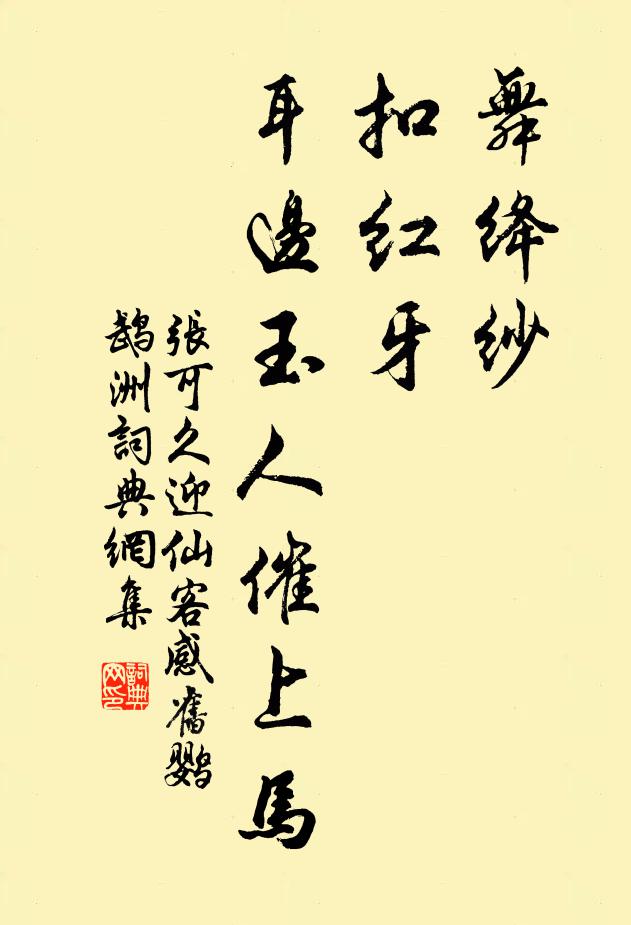 舞絳紗
扣紅牙
耳邊玉人催上馬
張可久迎仙客感舊鸚
鵡洲詞典網集
詞典
网印